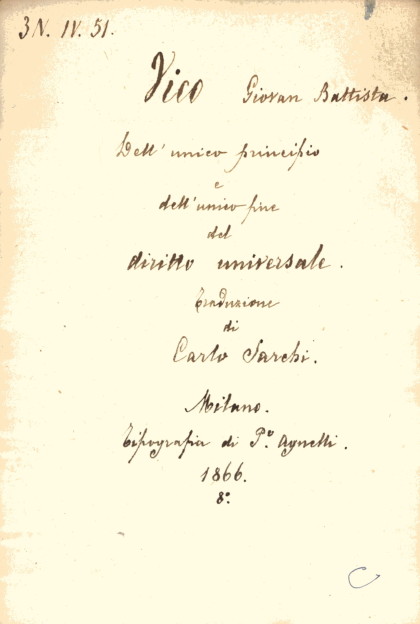 3 N. IV. 51.
Vico Giovan Battista.
Dell' unico principio
e
dell' unico fine
del
diritto universale.
Traduzione
di
Carlo Sarchi.
Milano.
Tipografia di P.º Agnelli.
1866.
8.º
C